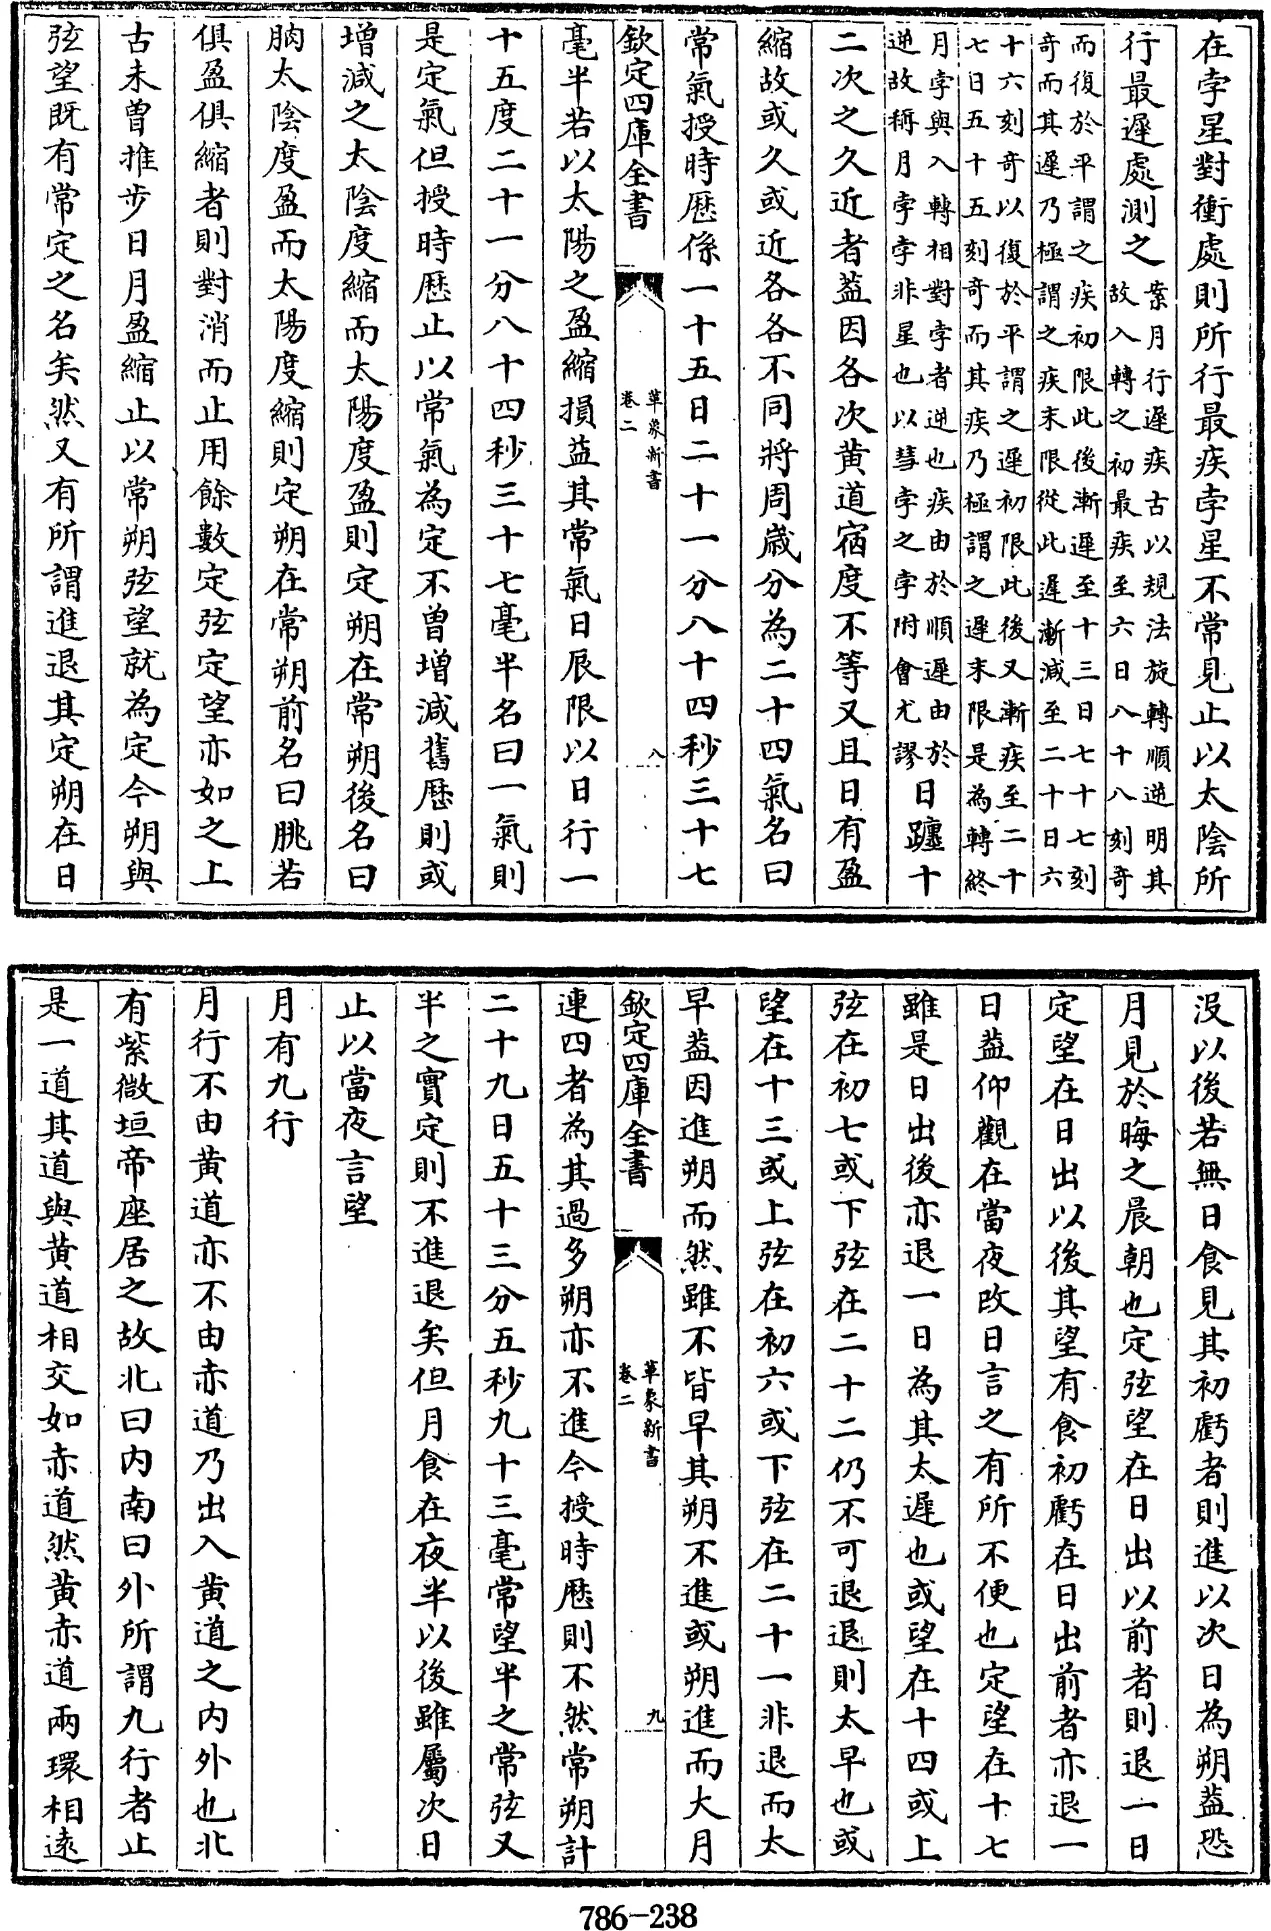 在孛星對衝處則所行最疾孛星不常見止以太陰所
行最遲處測之案月行遲疾古以規法旋轉順逆明其
故入轉之初最疾至六日八十八刻奇
而復於平謂之疾初限此後漸遲至十三日七十七刻
奇而其遲乃極謂之疾末限從此遲漸減至二十日六
十六刻奇以復於平謂之遲初限此後又漸疾至二十
七日五十五刻奇而其疾乃極謂之遲末限是為轉終
月孛與入轉相對孛者逆也疾由於順遲由於
逆故稱月孛孛非星也以彗孛之孛附會尤謬日躔十
二次之久近者葢因各次黄道宿度不等又且日有盈
縮故或久或近各各不同將周歲分為二十四氣名曰
常氣授時厯係一十五日二十一分八十四秒三十七
欽定四庫全書
革象新書
卷二
八
毫半若以太陽之盈縮損益其常氣日辰限以日行一
十五度二十一分八十四秒三十七毫半名曰一氣則
是定氣但授時厯止以常氣為定不曾增減舊厯則或
增減之太陰度縮而太陽度盈則定朔在常朔後名曰
朒太陰度盈而太陽度縮則定朔在常朔前名曰朓若
俱盈俱縮者則對消而止用餘數定弦定望亦如之上
古未曾推步日月盈縮止以常朔弦望就為定今朔與
弦望既有常定之名矣然又有所謂進退其定朔在日
没以後若無日食見其初虧者則進以次日為朔葢恐
月見於晦之晨朝也定弦望在日出以前者則退一日
定望在日出以後其望有食初虧在日出前者亦退一
日葢仰觀在當夜改日言之有所不便也定望在十七
雖是日出後亦退一日為其太遲也或望在十四或上
弦在初七或下弦在二十二仍不可退退則太早也或
望在十三或上弦在初六或下弦在二十一非退而太
早葢因進朔而然雖不皆早其朔不進或朔進而大月
欽定四庫全書
革象新書
卷二
九
連四者為其過多朔亦不進今授時厯則不然常朔計
二十九日五十三分五秒九十三毫常望半之常弦又
半之實定則不進退矣但月食在夜半以後雖屬次日
止以當夜言望
月有九行
月行不由黄道亦不由赤道乃出入黄道之内外也北
有紫微垣帝座居之故北曰内南曰外所謂九行者止
是一道其道與黄道相交如赤道然黄赤道兩環相遠
786-238